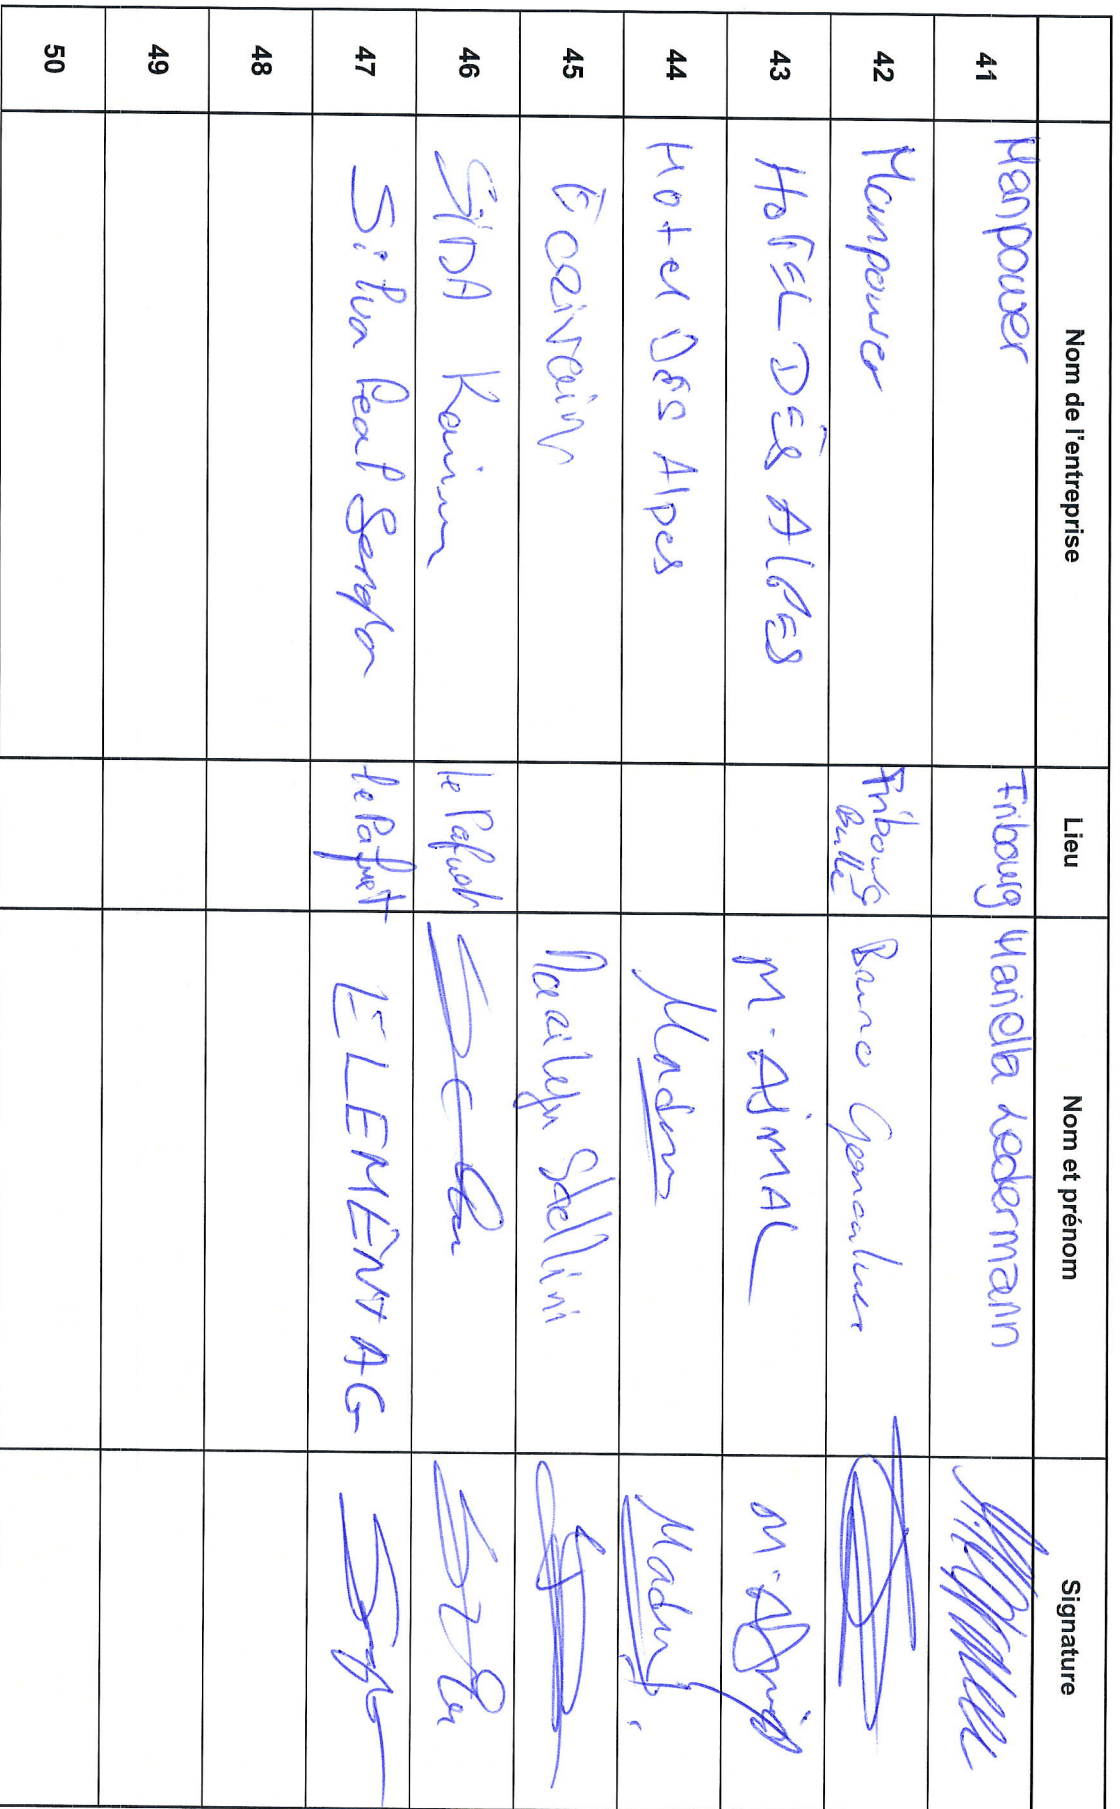 Nom de l'entreprise Lieu Nom et prénom Signature
41 Manpower Fribourg Mariella Ledermann
42 Manpower Fribourg Bulle Bruno
43 HOTEL DES ALPES M. AJMAL M. Ajmal
44 Hotel Des Alpes Madu Madu
45 Ecozivain Stellini
46 SIDA Karim le Pâquet
47 Silva Leal Sandra le Pâquet ELEMENT AG
48
49
50